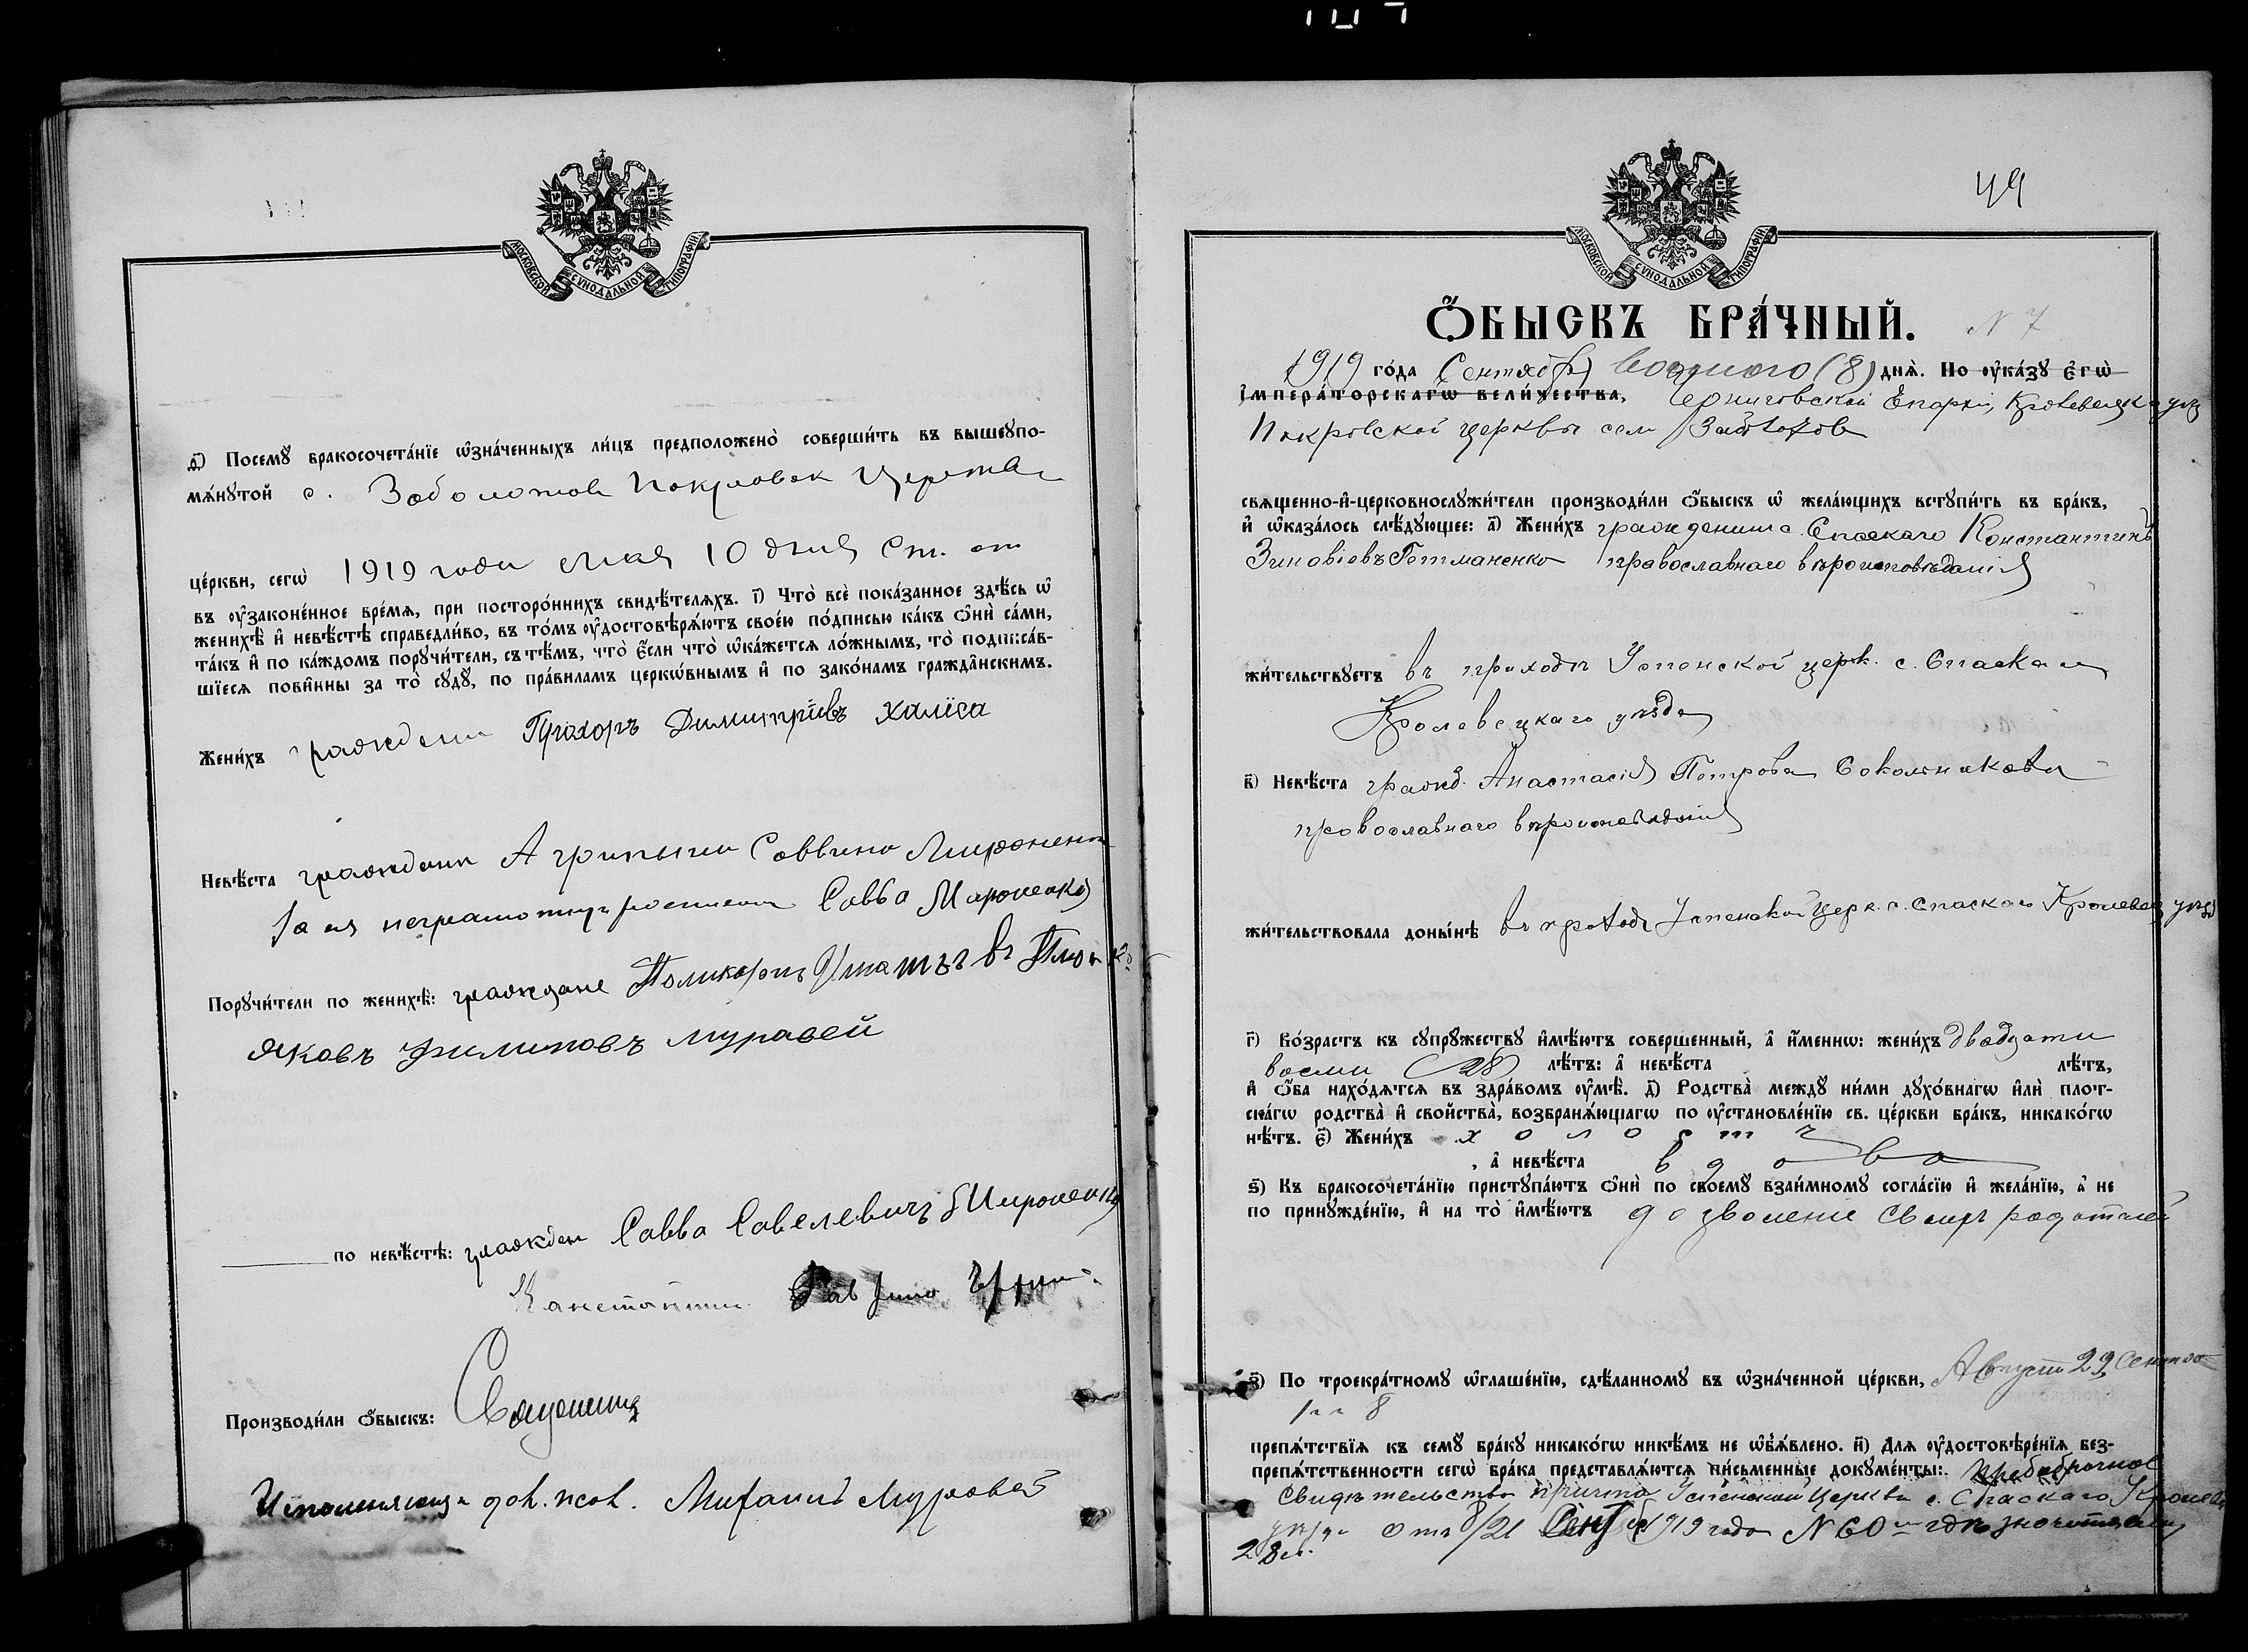 МОСКОВСКОЙ СѴНОДАЛЬНОЙ ТИПОГРАФІИ
д҃) Посемꙋ̀ бракосочета́нїе ѡ҆зна́ченныхъ ли́цъ предположено̀ соверши́ть въ вышеꙋпо-
мѧ́нꙋтой с. Заболотова Покровск Церкви
це́ркви, сегѡ̀ 1919 года Мая 10 дня Ст. ст
въ ᲂу҆законе́нное вре́мѧ, при посторо́ннихъ свидѣ́телѧхъ. і҃) Что̀ всѐ пока́занное здѣ́сь ѡ҆
женихѣ̀ и҆ невѣ́стѣ справедли́во, въ то́мъ ᲂу҆достовѣрѧ́ютъ свое́ю по́дписью ка́къ ѻ҆нѝ са́ми,
та́къ и҆ по ка́ждомъ порꙋчи́тели, съ тѣ́мъ, что̀ є҆́сли что̀ ѡ҆ка́жетсѧ ло́жнымъ, то̀ подписа́в-
шїесѧ пови́нны за то̀ сꙋдꙋ̀, по пра́виламъ церкѡ́внымъ и҆ по зако́намъ гражда́нскимъ.
Жени́хъ граждани Прохоръ Димитріевъ Халіса
Невѣ́ста граждани Агрипина Саввина Мироненко
За ея неграмотную Савва Мироненко
Порꙋчи́тели по женихѣ̀: граждане Поликарпъ Игнатъевъ
Яковъ Филиповъ Муравей
по невѣ́стѣ: граждан Савва Савелевичъ Мироненко
Константин
Производи́ли ѻ҆́быскъ: Священник
Исполняющи дол. псал. Михаилъ Муравей
49
МОСКОВСКОЙ СѴНОДАЛЬНОЙ ТИПОГРАФІИ
Ѻ҆́БЫСКЪ БРА́ЧНЫЙ. N 7
1919 го́да Сентября восьмого (8) днѧ̀. По ᲂу҆ка́зꙋ є҆гѡ̀
і҆мпера́торскагѡ вели́чества, Черниговской Епархіи, Кролевецк уѣз
Покровской церкви села Заболотова
свѧщенно-и҆-церковнослꙋжи́тели производи́ли ѻ҆́быскъ ѡ҆ жела́ющихъ встꙋпи́ть въ бра́къ,
и҆ ѡ҆каза́лось слѣ́дꙋющее: а҃) Жени́хъ гражданинъ с. Спаскаго Константинъ
Зиновіевъ Гетманенко православнаго вѣроисповѣданія
жи́тельствꙋетъ въ приходѣ Успенской церк. с. Спаскаго
Кролевецкаго уѣзда
в҃) Невѣ́ста гражд. Анастасія Петрова Соколникова
православнаго вѣроисповѣданія
жи́тельствовала доны́нѣ въ приходѣ Успенской Церк. с. Спаскаго Кролевец уѣзда
г҃) Во́зрастъ къ сꙋпрꙋ́жествꙋ и҆мѣ́ютъ соверше́нный, а҆ и҆́меннѡ: жени́хъ двадцати
восми (28) лѣ́тъ: а҆ невѣ́ста лѣ́тъ,
и҆ ѻ҆́ба нахо́дѧтсѧ въ здра́вомъ ᲂу҆мѣ̀. д҃) Родства̀ междꙋ̀ ни́ми дꙋхо́внагѡ и҆лѝ плот-
ска́гѡ родства̀ и҆ свойства̀, возбранѧ́ющагѡ по ᲂу҆становле́нїю св. це́ркви бра́къ, никако́гѡ
нѣ́тъ. є҃) Жени́хъ холостъ
, а҆ невѣ́ста вдова
ѕ҃) Къ бракосочета́нїю пристꙋпа́ютъ ѻ҆нѝ по своемꙋ̀ взаи́мномꙋ согла́сїю и҆ жела́нїю, а҆ не
по принꙋжде́нїю, и҆ на то̀ и҆мѣ́ютъ дозволеніе своихъ родителей
з҃) По троекра́тномꙋ ѡ҆глаше́нїю, сдѣ́ланномꙋ въ ѡ҆зна́ченной це́ркви, Августа 29, Сентяб
1 и 8
препѧ́тствїѧ къ семꙋ̀ бра́кꙋ никако́гѡ никѣ́мъ не ѡ҆б̾ѧ́влено. и҃) Длѧ ᲂу҆достовѣре́нїѧ без-
препѧ́тственности сегѡ̀ бра́ка представлѧ́ютсѧ пи́сьменные докꙋме́нты: предбрачное
Свидѣтельство причта Успенской Церкви с. Спаскаго Кролев
уѣзда отъ 8/21 Сент 1919 года N 60 гдѣ значится
28 л.